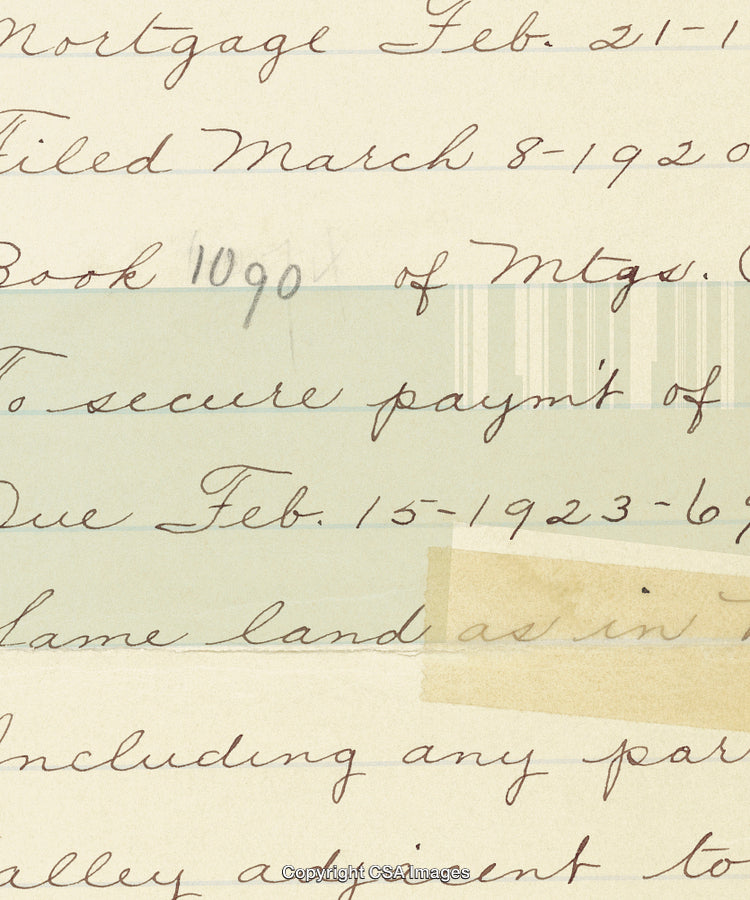 Mortgage Feb. 21-1
Filed March 8-1920
Book 1090 of Mtgs.
To secure paym't of
Due Feb. 15-1923-6
Same land as in
Including any par
alley adjicent to
Copyright CSA Images